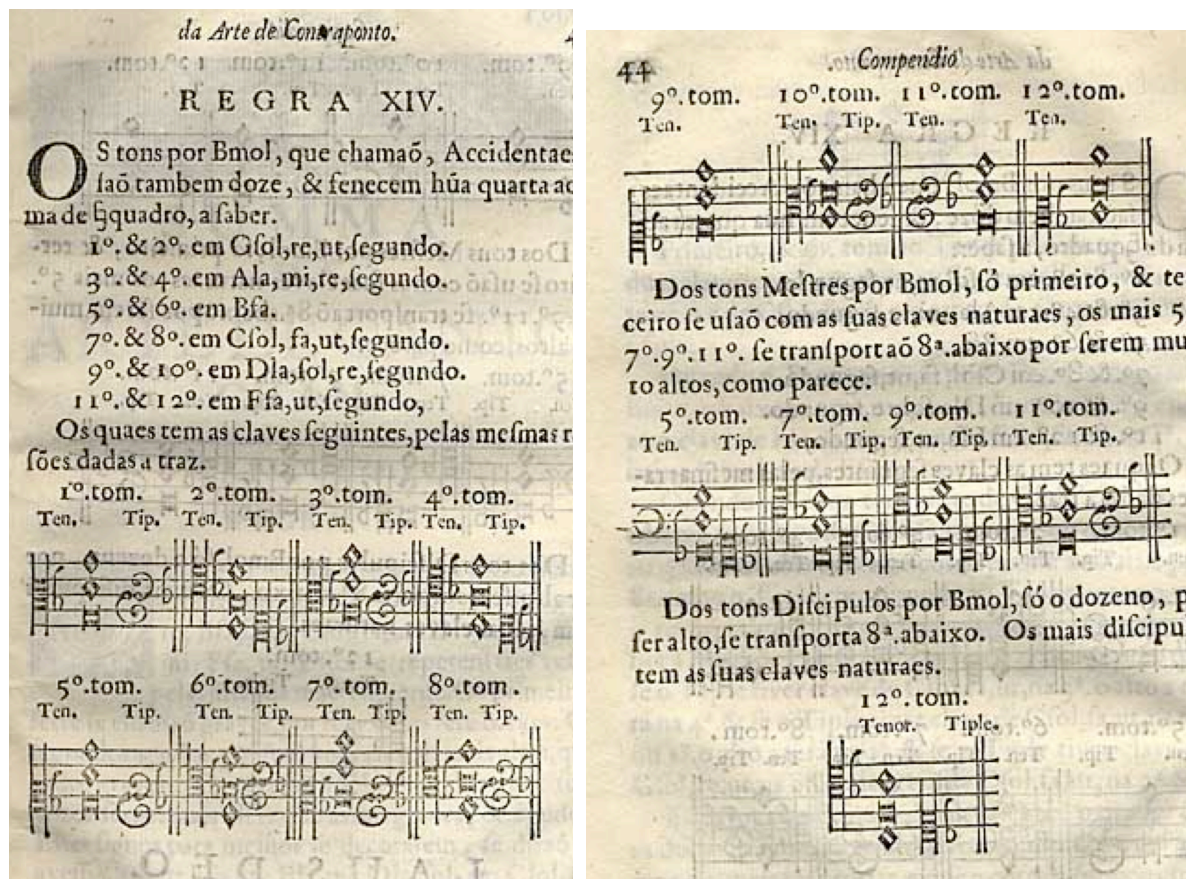 da Arte de Contraponto.
REGRA XIV.
OS tons por Bmol, que chamaõ, Accidentae
ſaõ tambem doze, & fenecem hũa quarta ac
ma de ♮quadro, a ſaber.
1º. & 2º. em Gſol,re,ut,ſegundo.
3º. & 4º. em Ala,mi,re,ſegundo.
5º. & 6º. em Bfa.
7º. & 8º. em Cſol,fa,ut,ſegundo.
9º. & 10º. em Dla,ſol,re,ſegundo.
11º. & 12º. em Ffa,ut,ſegundo,
Os quaes tem as claves ſeguintes,pelas meſmas r
ſões dadas a traz.
1º.tom. 2º.tom. 3º.tom. 4º.tom.
Ten. Tip. Ten. Tip. Ten. Tip. Ten. Tip.
5º.tom. 6º.tom. 7º.tom. 8º.tom.
Ten. Tip. Ten. Tip. Ten. Tip. Ten. Tip.
44 Compendio
9º.tom. 10º.tom. 11º.tom. 12º.tom.
Ten. Ten. Tip. Ten. Ten.
Dos tons Meſtres por Bmol, ſó primeiro, & te
ceiro ſe uſaõ com as ſuas claves naturaes, os mais 5
7º.9º.11º. ſe tranſportaõ 8ª.abaixo por ſerem mu
to altos, como parece.
5º.tom. 7º.tom. 9º.tom. 11º.tom.
Ten. Tip. Ten. Tip. Ten. Tip. Ten. Tip.
Dos tons Diſcipulos por Bmol, ſó o dozeno, p
ſer alto, ſe tranſporta 8ª.abaixo. Os mais diſcipu
tem as ſuas claves naturaes.
12º.tom.
Tenor. Tiple.